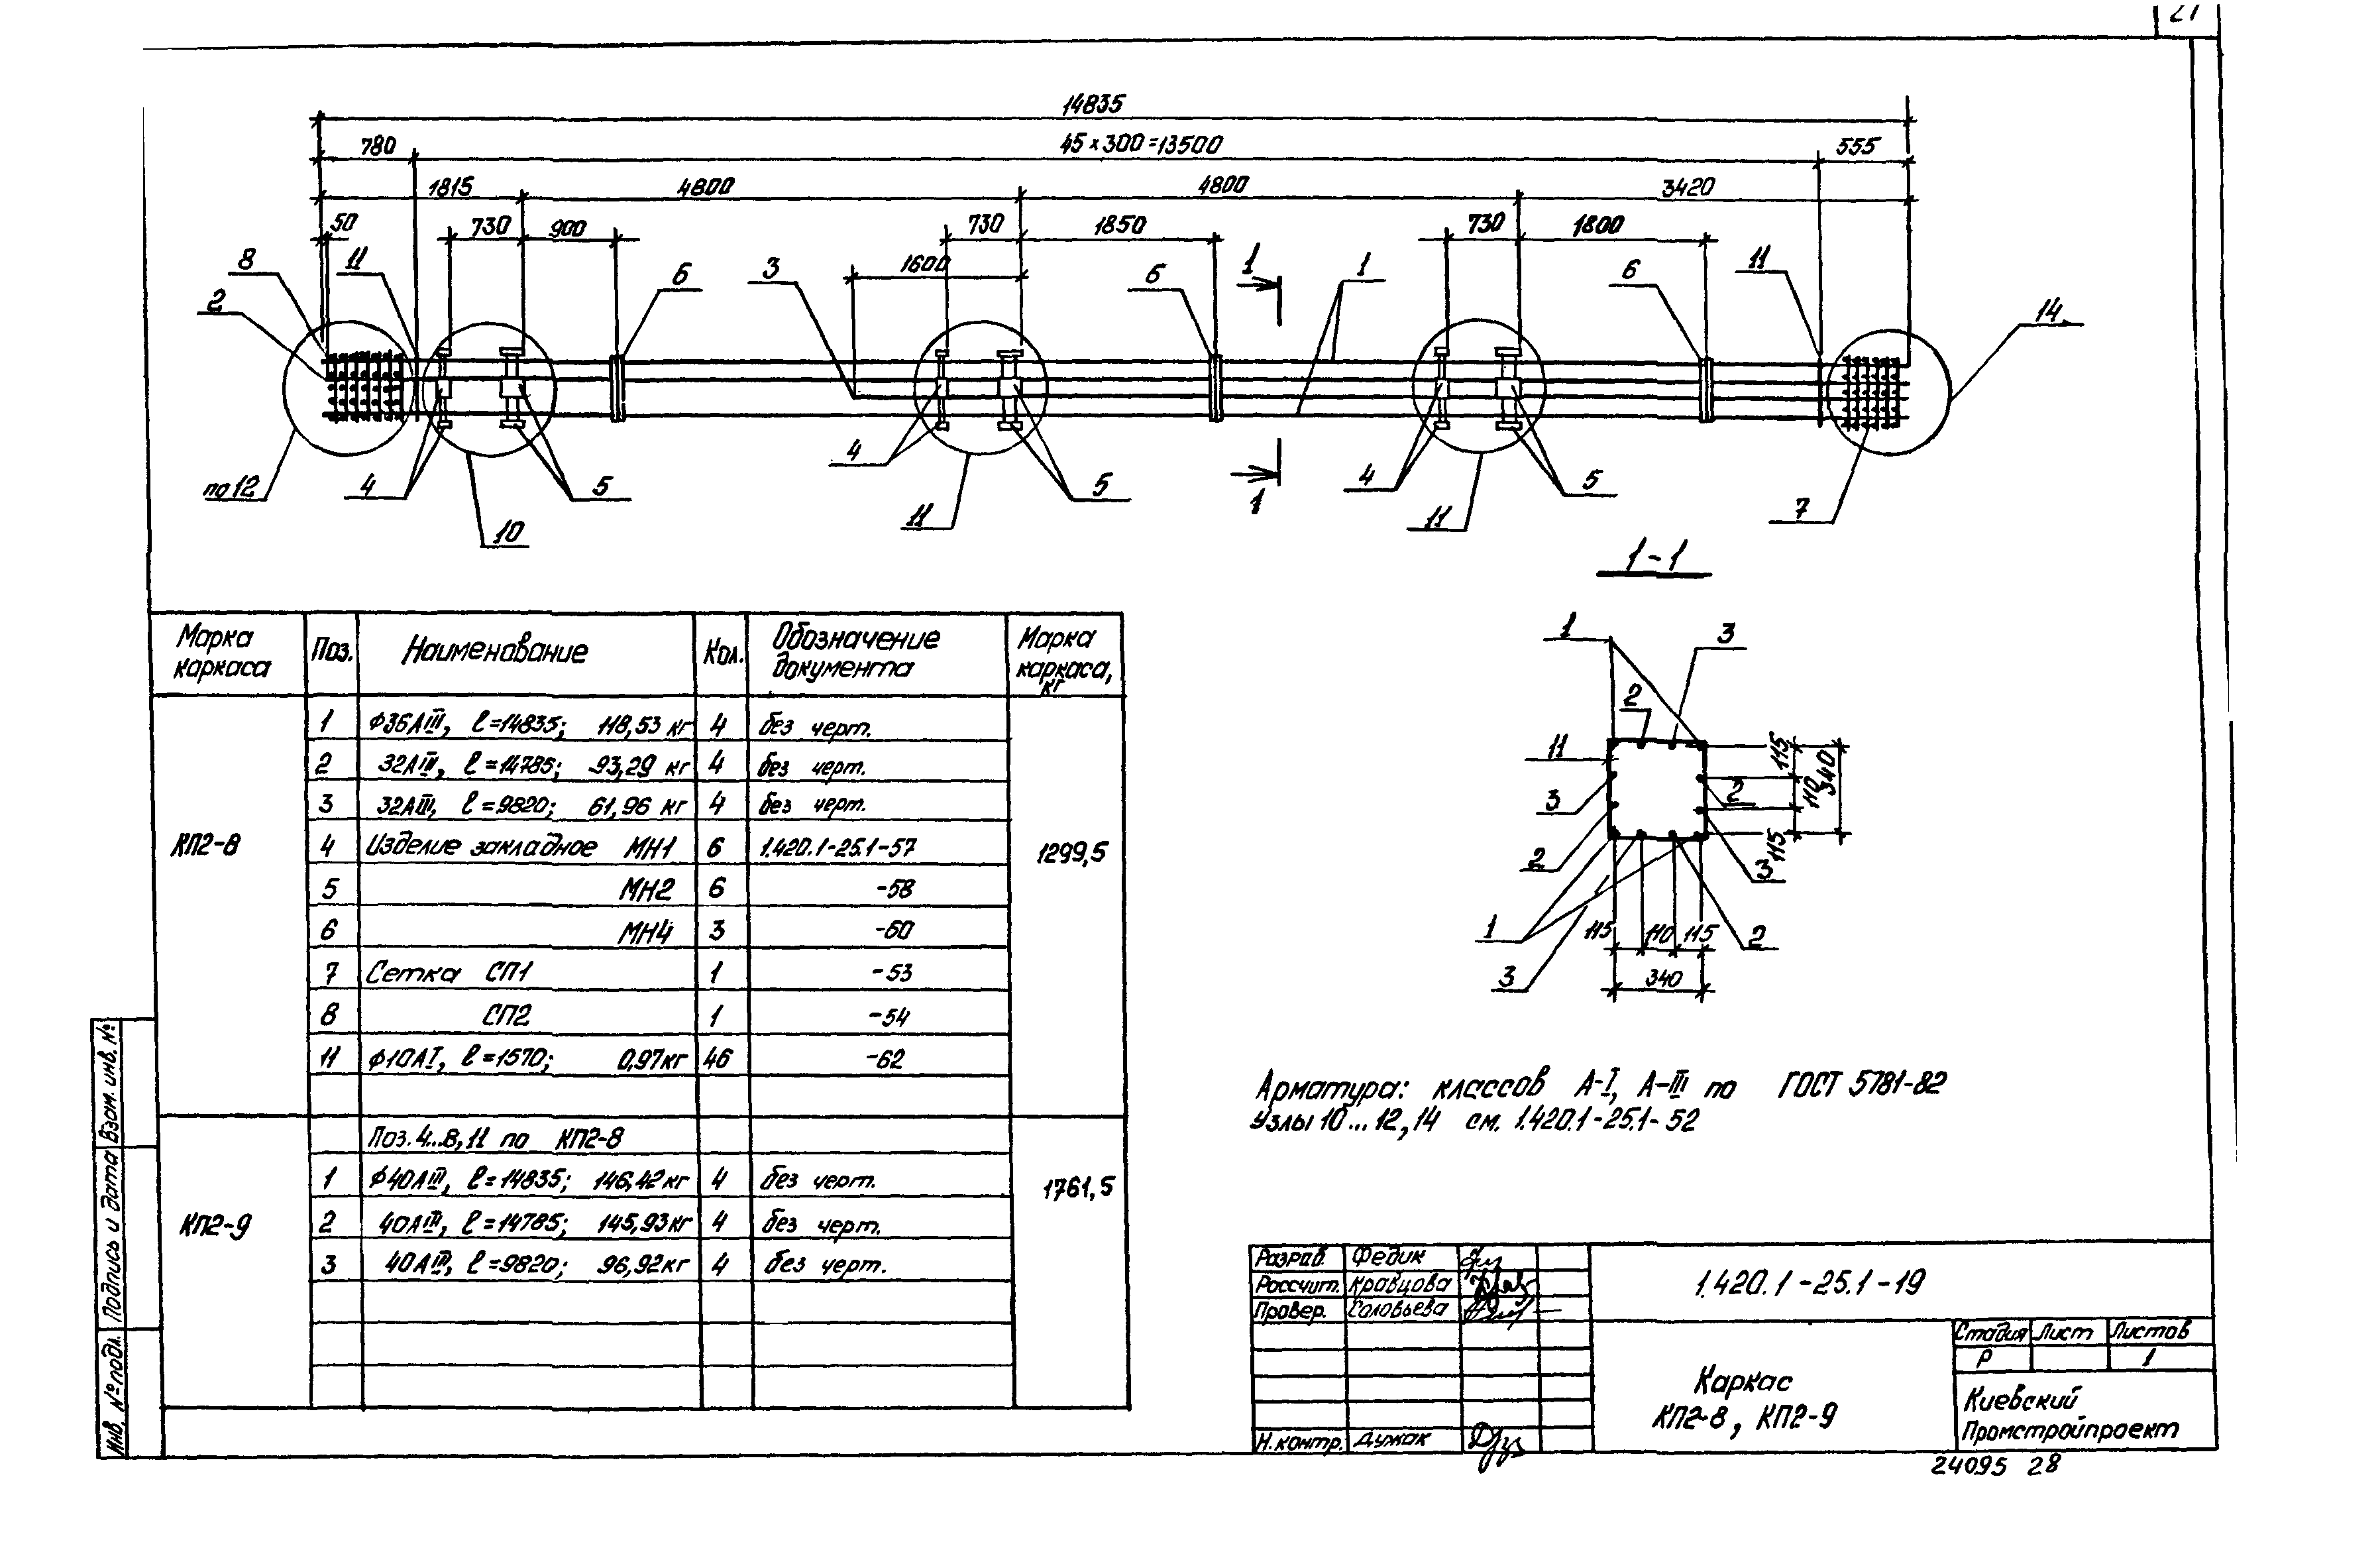 14835
780 45 x 300 = 13500 555
1815 4800 4800 3420
50 730 900 730 1850 730 1800
1600
8 11 6 3 6 1 1 6 11
2 14
по 12 4 5 4 5 4 5 7
10 11 11 1
1-1
1 3
2
11
3 2
2 3
1 2
3
115 110 115
340
115 110 115
340
Марка каркаса Поз. Наименование Кол. Обозначение документа Марка каркаса, кг
КП2-8 1299,5
1 ф36АIII, ℓ=14835; 118,53 кг 4 без черт.
2 32АIII, ℓ=14785; 93,29 кг 4 без черт.
3 32АIII, ℓ=9820; 61,96 кг 4 без черт.
4 Изделие закладное МН1 6 1.420.1-25.1-57
5 МН2 6 -58
6 МН4 3 -60
7 Сетка СП1 1 -53
8 СП2 1 -54
11 ф10АI, ℓ=1570; 0,97кг 46 -62
КП2-9 1761,5
Поз. 4...8, 11 по КП2-8
1 ф40АIII, ℓ=14835; 146,42кг 4 без черт.
2 40АIII, ℓ=14785; 145,93кг 4 без черт.
3 40АIII, ℓ=9820; 96,92кг 4 без черт.
Арматура: классов А-I, А-III по ГОСТ 5781-82
Узлы 10...12, 14 см. 1.420.1-25.1-52
Взам. инв. №
Подпись и дата
Инв. № подл.
Разраб. Федик
Рассчит. Кравцова
Провер. Соловьева
Н. контр. Дужак
1.420.1-25.1-19
Каркас
КП2-8, КП2-9
Стадия Лист Листов
Р 1
Киевский
Промстройпроект
24095 28